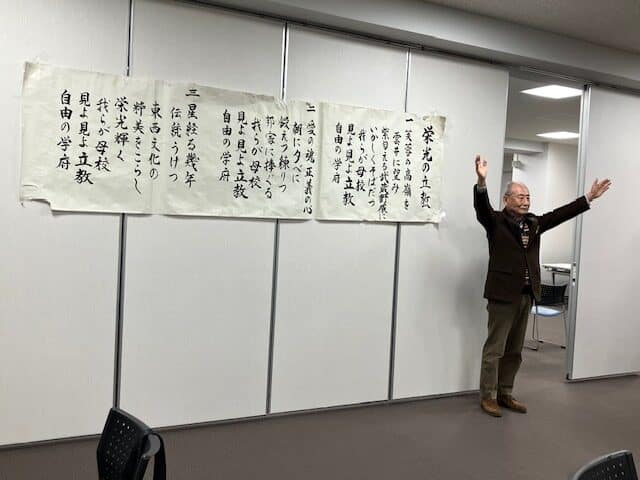 栄光の立教
一 芙蓉の高嶺を
雲井に望み
紫匂える武蔵野原に
いかしくそばだつ
我らが母校
見よ見よ立教
自由の学府
二 愛の魂正義の心
朝に夕べに
鍛えつ練りつ
邦家に捧ぐる
我らが母校
見よ見よ立教
自由の学府
三 星経る幾年
伝統うけつ
東西文化の
粋美をこらし
栄光輝く
我らが母校
見よ見よ立教
自由の学府